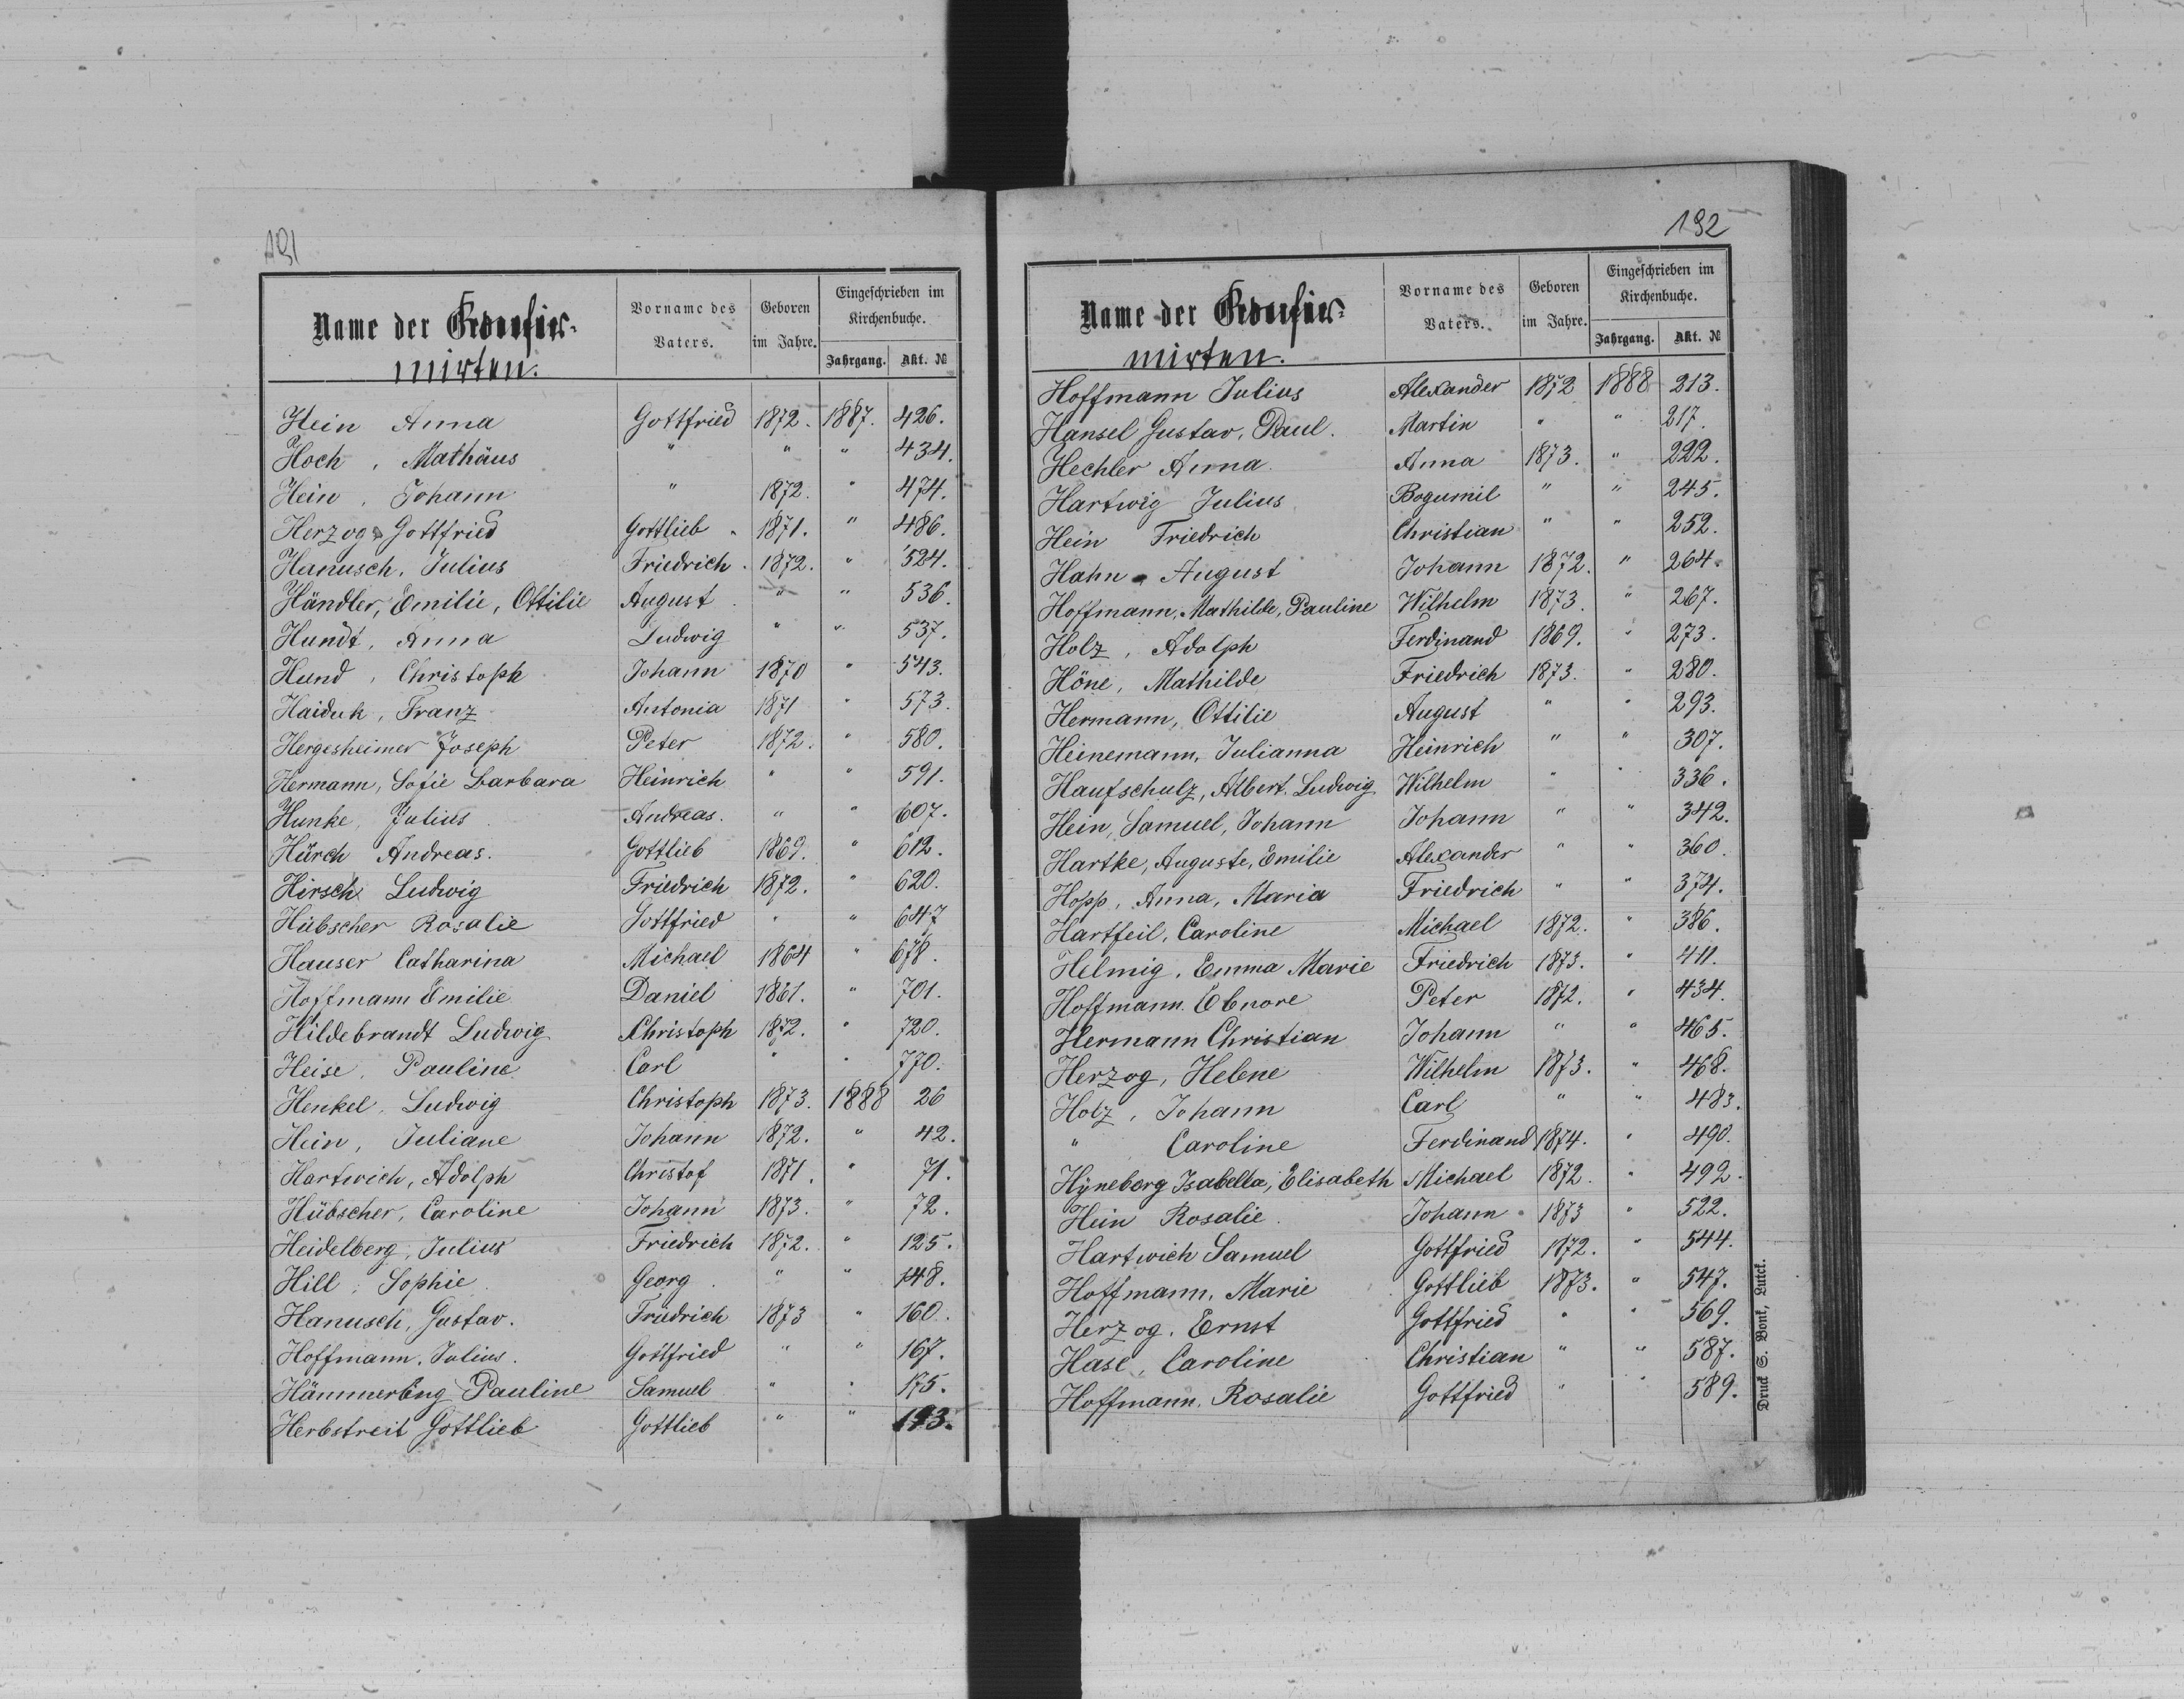 191
Name der Geconfir-
mirten.
Vorname des Vaters.
Geboren im Jahre.
Eingeschrieben im Kirchenbuche.
Jahrgang. Akt. №
Hein Anna Gottfried 1872. 1887. 426.
Hoch, Mathäus " " " 434.
Hein, Johann " 1872. " 474.
Herzog Gottfried Gottlieb 1871. " 486.
Hanusch, Julius Friedrich 1872. " 524.
Händler, Emilie, Ottilie August " " 536.
Hundt, Anna Ludwig " " 537.
Hund, Christoph Johann 1870 " 543.
Haiduk, Franz Antonia 1871 " 573.
Hergesheimer Joseph Peter 1872. " 580.
Hermann, Sofie Barbara Heinrich " " 591.
Hunke, Julius Andreas. " " 607.
Hürch Andreas. Gottlieb 1869. " 612.
Hirsch Ludwig Friedrich 1872. " 620.
Hübscher Rosalie Gottfried " " 647
Hauser Catharina Michael 1864 " 678.
Hoffmann Emilie Daniel 1861. " 701.
Hildebrandt Ludwig Christoph 1872. " 720.
Heise, Pauline Carl " " 770.
Henkel, Ludwig Christoph 1873. 1888 26
Hein, Juliane Johann 1872. " 42.
Hartwich, Adolph Christof 1871. " 71.
Hübscher, Caroline Johann 1873. " 72.
Heidelberg, Julius Friedrich 1872. " 125.
Hill, Sophie Georg " " 148.
Hanusch, Gustav. Friedrich 1873 " 160.
Hoffmann, Julius. Gottfried " " 167.
Hämmerling Pauline Samuel " " 175.
Herbstreit Gottlieb Gottlieb " " 193.
192
Name der Geconfir-
mirten.
Vorname des Vaters.
Geboren im Jahre.
Eingeschrieben im Kirchenbuche.
Jahrgang. Akt. №
Hoffmann Julius Alexander 1872 1888 213.
Hansel Gustav, Paul. Martin " " 217.
Hechler Anna. Anna 1873. " 222.
Hartwig Julius Bogumil " " 245.
Hein Friedrich Christian " " 252.
Hahn August Johann 1872. " 264.
Hoffmann, Mathilde, Pauline Wilhelm 1873. " 267.
Holz, Adolph Ferdinand 1869. " 273.
Höne, Mathilde Friedrich 1873. " 280.
Hermann, Ottilie August " " 293.
Heinemann, Julianna Heinrich " " 307.
Haufschulz, Albert. Ludwig Wilhelm " " 336.
Hein, Samuel, Johann Johann " " 342.
Hartke, Auguste, Emilie Alexander " " 360.
Hopp, Anna, Maria Friedrich " " 374.
Hartfeil, Caroline Michael 1872. " 386.
Helmig, Emma Marie Friedrich 1873. " 411.
Hoffmann. Peter 1872. " 434.
Hermann Christian Johann " " 465.
Herzog, Helene Wilhelm 1873. " 468.
Holz, Johann Carl " " 483.
" Caroline Ferdinand 1874. " 490.
Hyneborg Isabella, Elisabeth Michael 1872. " 492.
Hein Rosalie. Johann 1873 " 522.
Hartwich Samuel Gottfried 1872. " 544.
Hoffmann, Marie Gottlieb 1873. " 547.
Herzog, Ernst Gottfried " " 569.
Hase, Caroline Christian " " 587.
Hoffmann, Rosalie Gottfried " " 589.
Druck S. Bonk, Lutck.